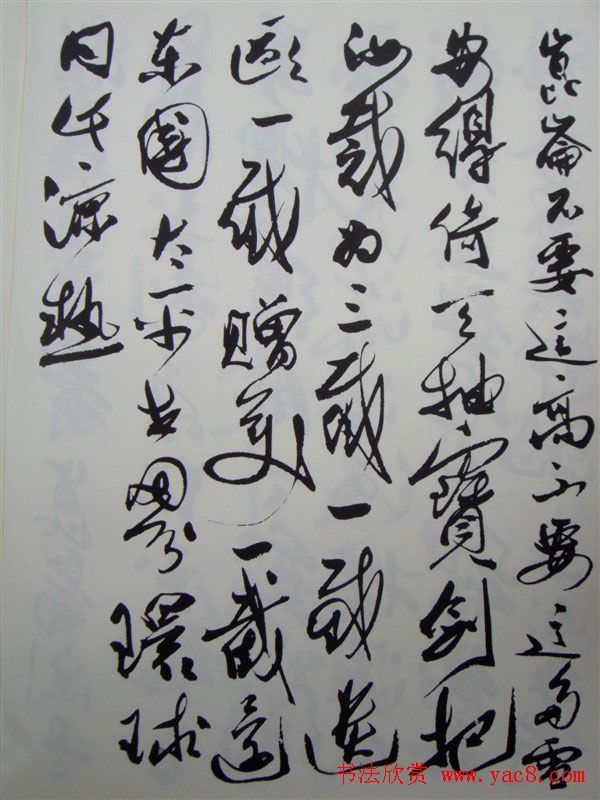 崑崙不要這高不要這多雪
安得倚天抽寶劍把
汝裁为三截一截遗
欧一截贈美一截還
东國太平世界環球
同此涼热
书法欣赏 www.yac8.com